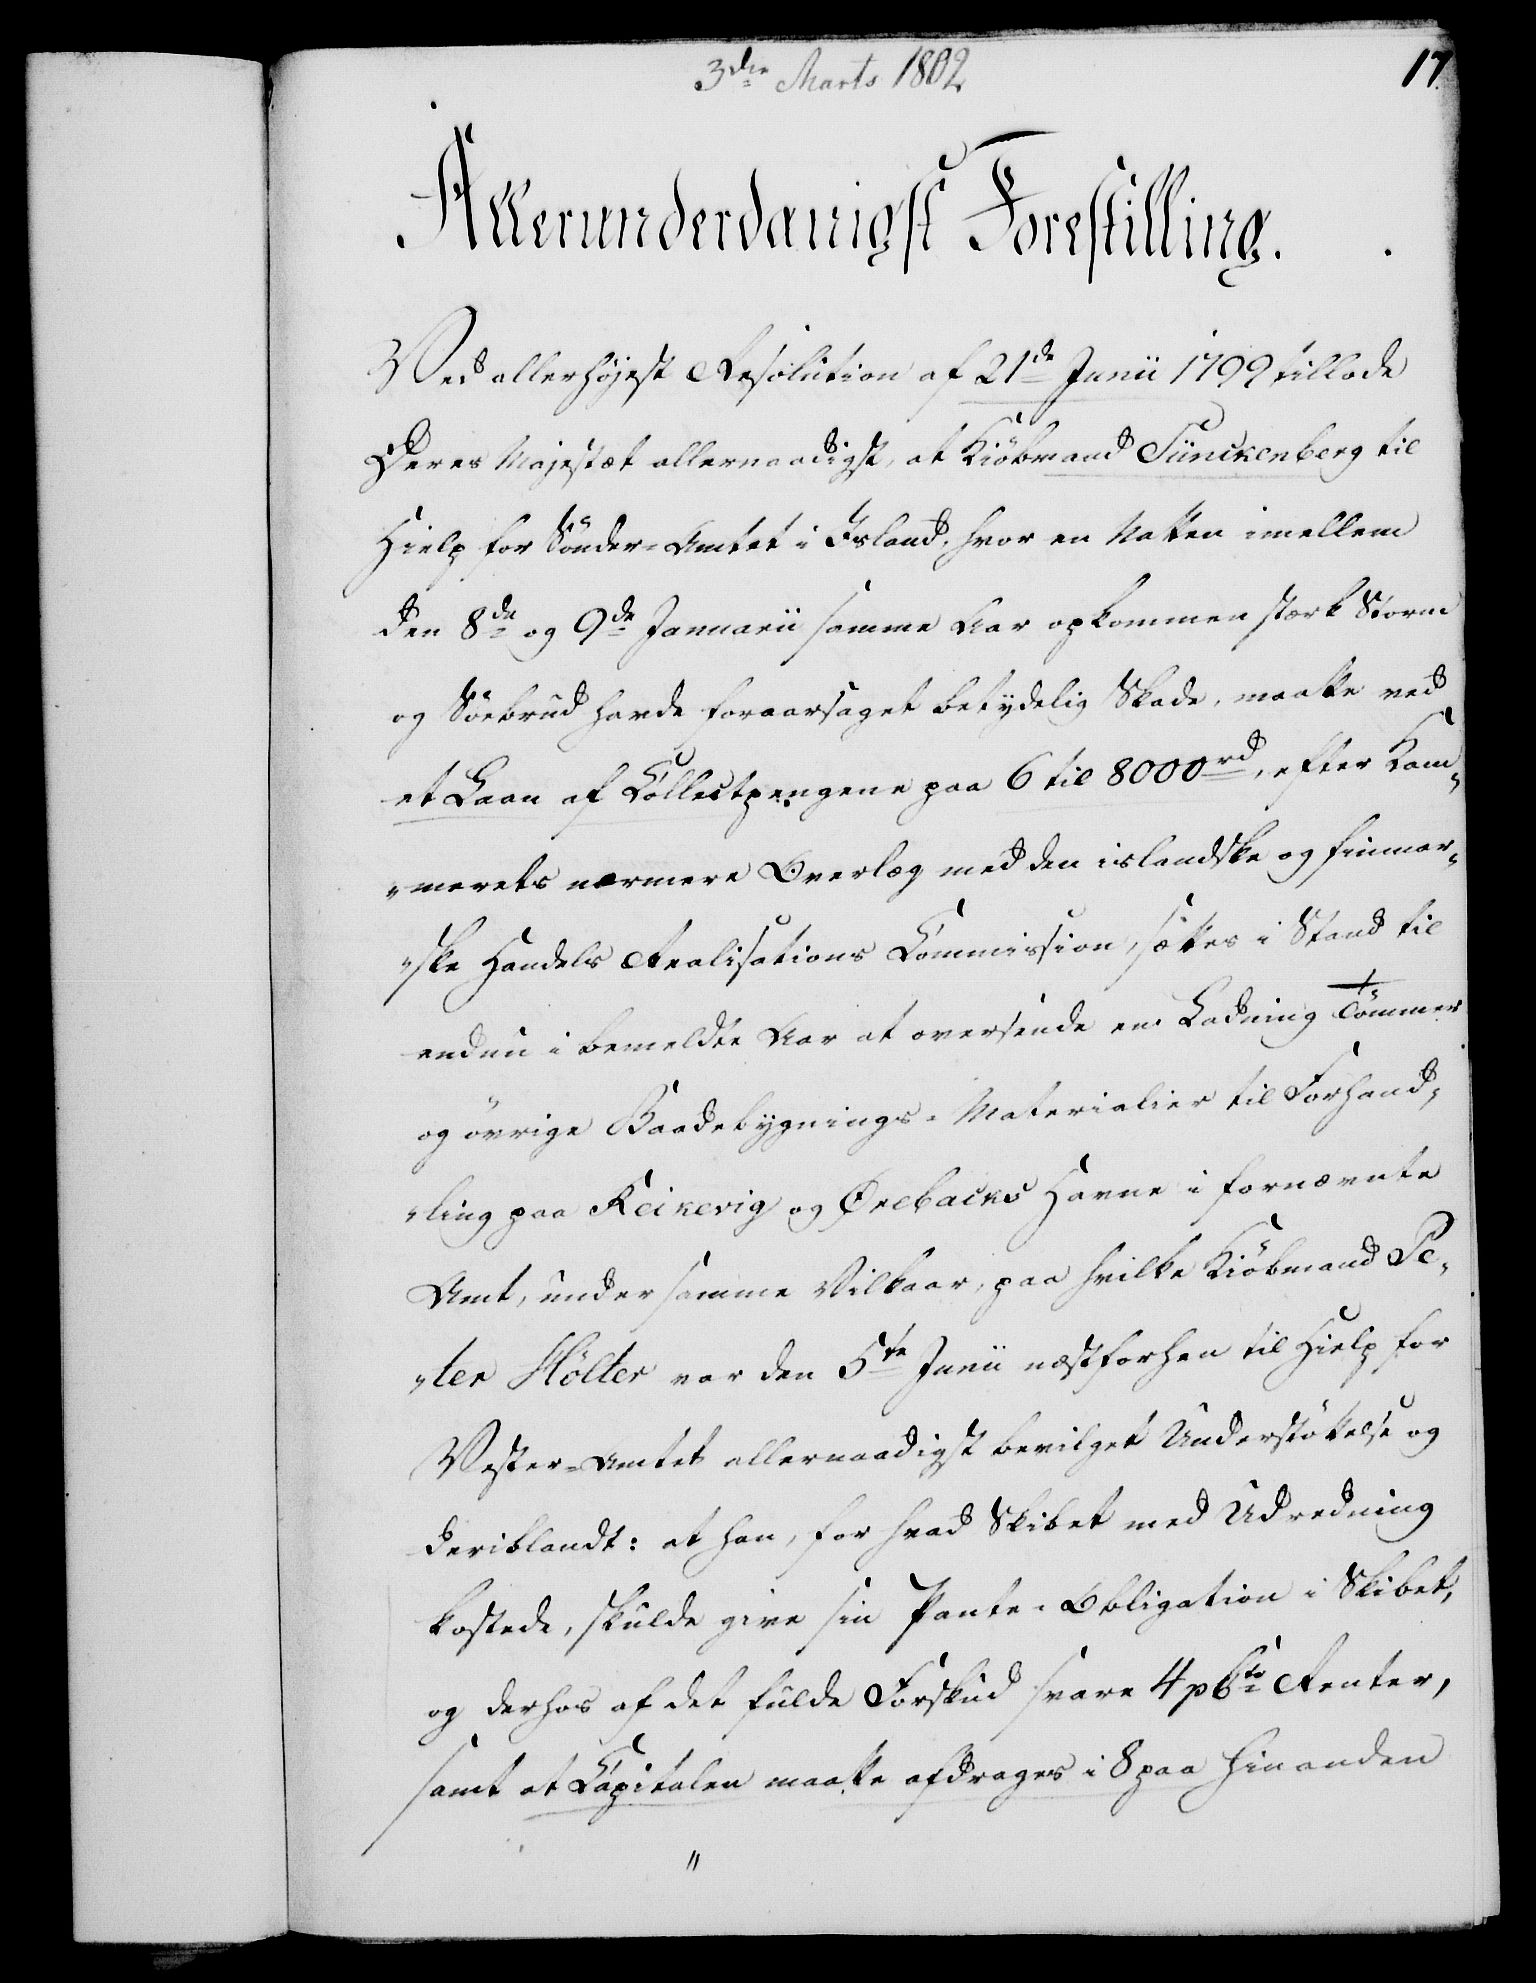 3die Marts 1802
17.
Allerunderdanigst Forestilling.
Ved allerhöjest Resolution af 21de Junii 1799 tillode
Deres Majestæt allernaadigst, at Kiöbmand Sünckenberg til
Hielp for Sönder-Amtet i Island, hvor en Natten imellem
den 8de og 9de Januarii samme Aar opkommen stærk Storm
og Söebrud havde foraarsaget betydelig Skade, maatte ved
et Laan af Collectpengene paa 6 til 8000rd, efter Kam-
„merets nærmere Overlæg med den islandske og finmar-
„ske Handels Realisations Commission, sættes i Stand til
endnu i bemeldte Aar at oversende en Ladning Tömmer
og övrige Baadebygnings-Materialier til Forhand-
„ling paa Reikevig og Örebacks Havne i fornævnte
Amt, under samme Vilkaar, paa hvilke Kiöbmand Pe-
„ter Hölter var den 5te Junii næstforhen til Hielp for
Vester-Amtet allernaadigst bevilget Understöttelse og
deriblandt: at han, for hvad Skibet med Udredning
kostede, skulde give sin Pante-Obligation i Skibet,
og derhos af det fulde Forskud svare 4 pCto Renter,
samt at Capitalen maatte afdrages i 8 paa hinanden
"